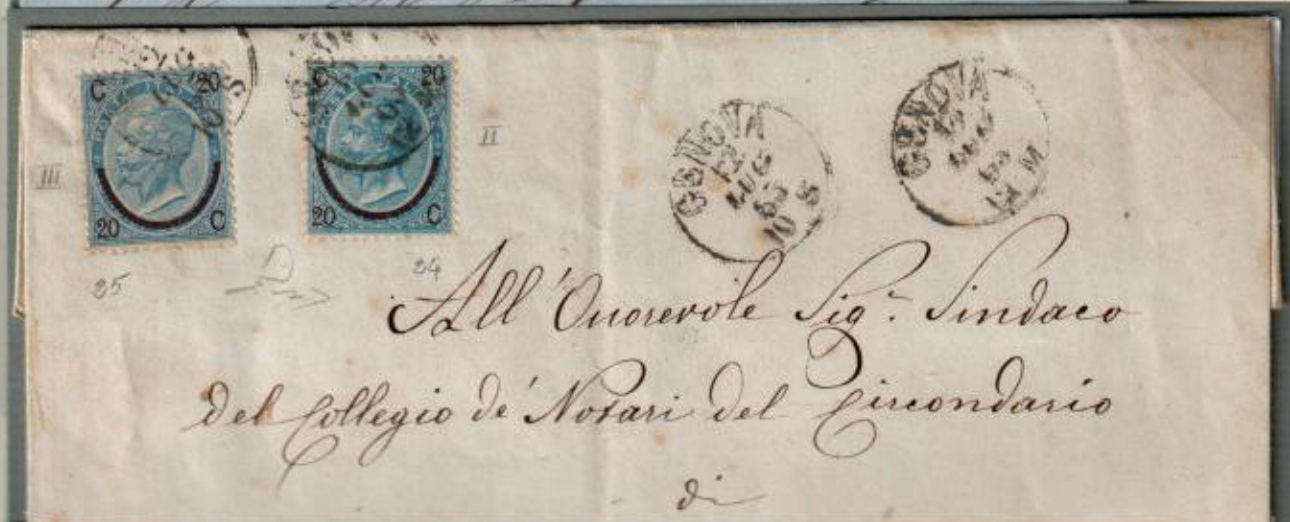 C 20
20 C
C 20
20 C
III
II
25
24
GENOVA
12
LUG
65
10 S
GENOVA
LUG
65
M
All' Onorevole Sigr. Sindaco
del Collegio de' Notari del Circondario
di